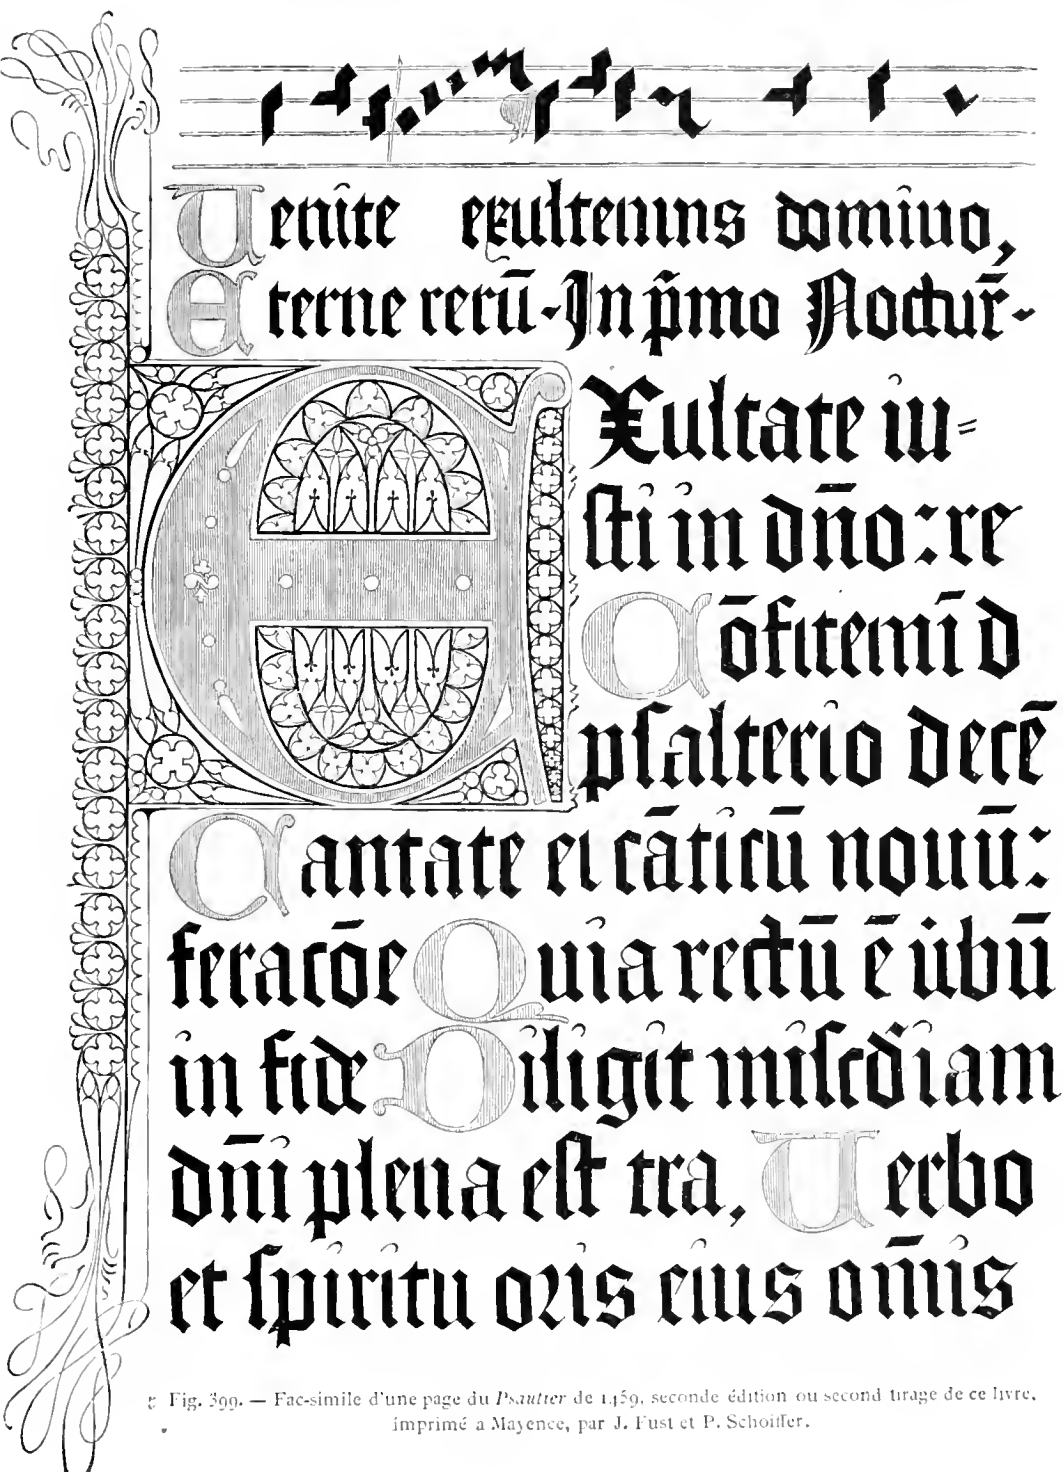 Venite exultemus domino,
Eterne rerū. In p̄mo Noctur̄.
EXultate iu=
sti in dn̄o: re
Cōfitemī d
psalterio decē
Cantate ei cāticū nouū:
feracōe Quia rectū ē ūbū
in fide Diligit miscd̄iam
dn̄i plena est tra, Verbo
et spiritu oris eius om̄is
Fig. 399. — Fac-simile d'une page du Psautier de 1459, seconde édition ou second tirage de ce livre,
imprimé a Mayence, par J. Fust et P. Schoiffer.